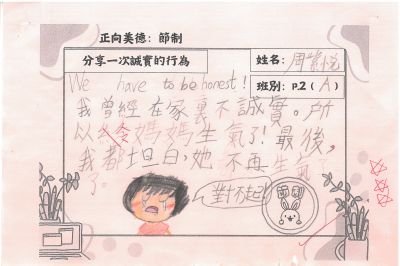 正向美德：節制
分享一次誠實的行為
姓名：周紫悅
班別：P.2（A）
We have to be honest!
我曾經在家裏不誠實。所
以令媽媽生氣了！最後，
我都坦白，她不再生氣
了。
對不起！
節制